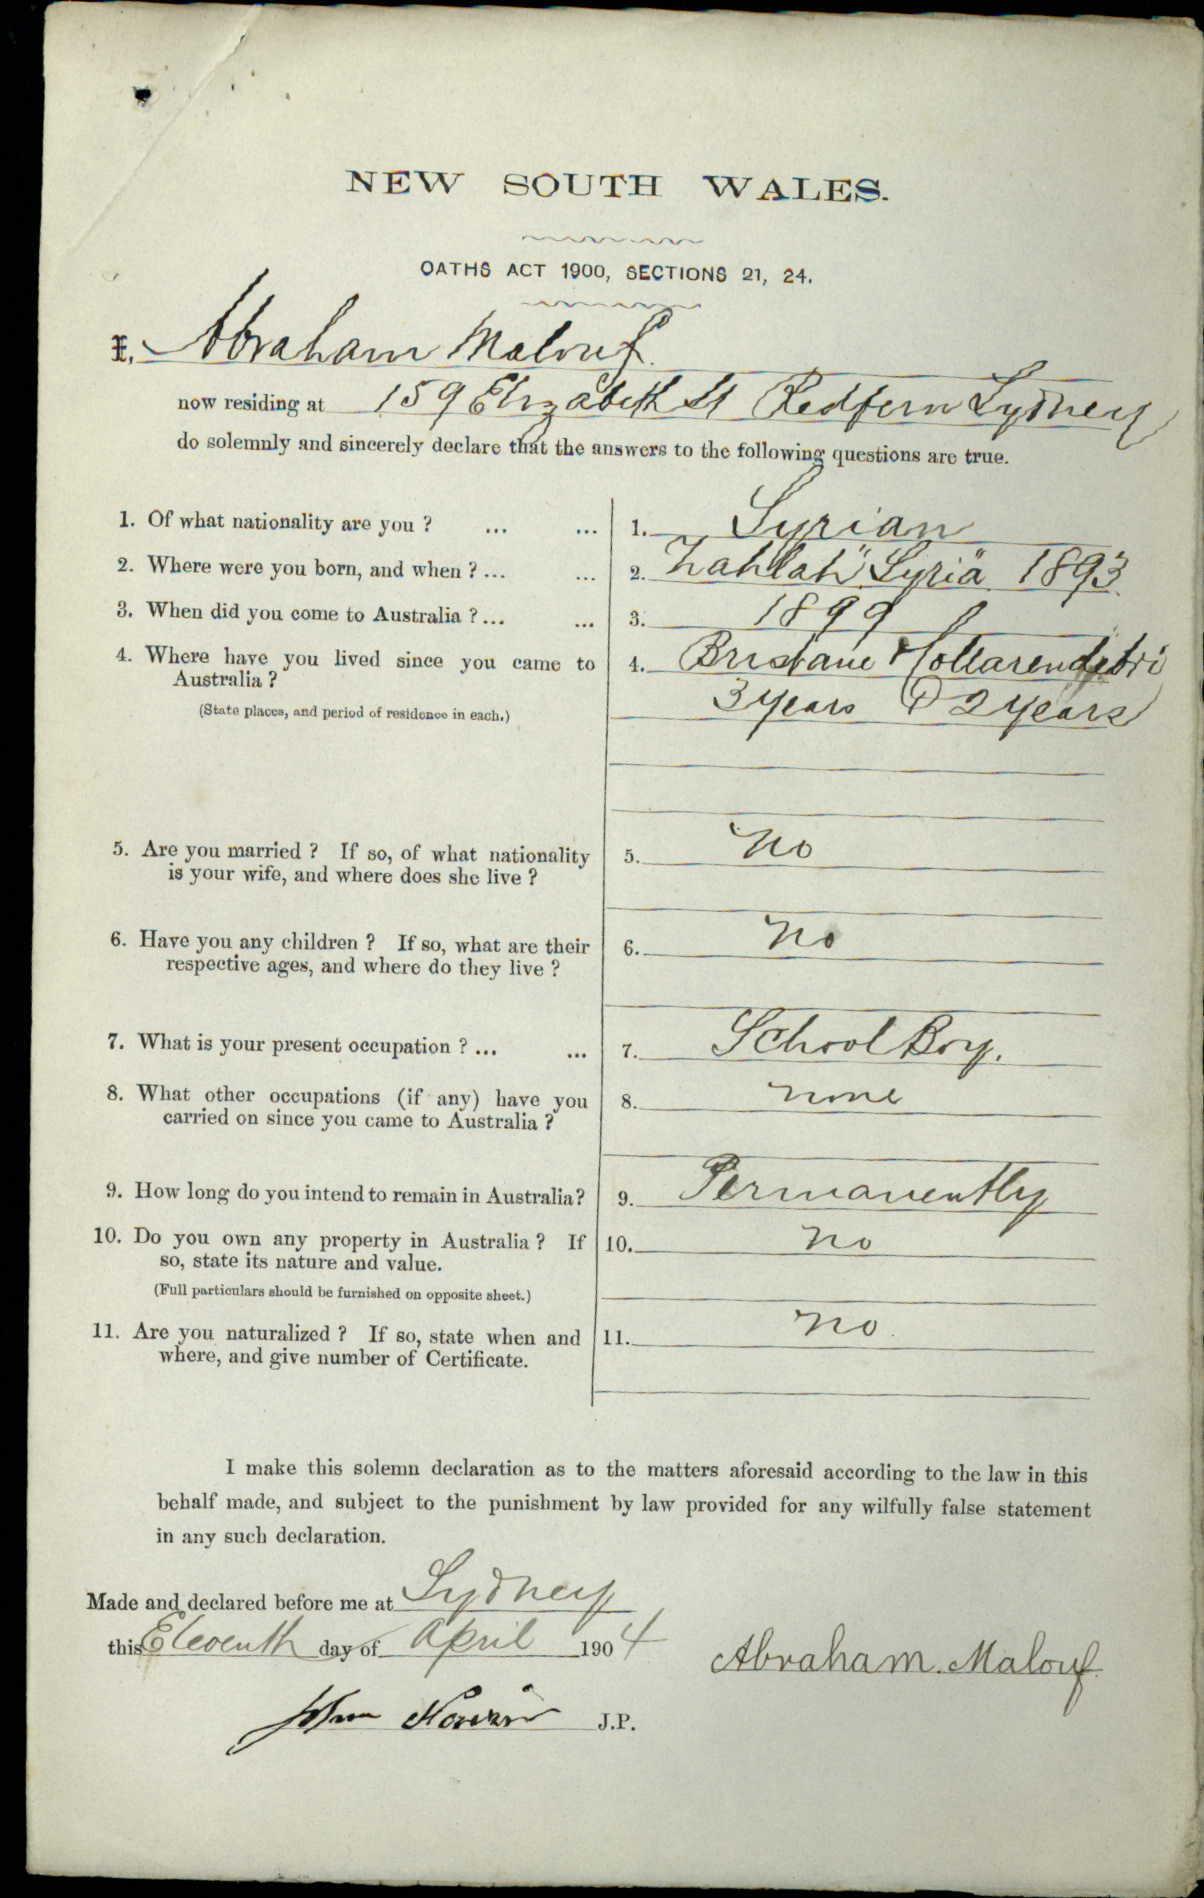 NEW SOUTH WALES.
OATHS ACT 1900, SECTIONS 21, 24.
I, Abraham Malouf.
now residing at 159 Elizabeth St Redfern Sydney
do solemnly and sincerely declare that the answers to the following questions are true.
1. Of what nationality are you ? ... ... 1. Syrian
2. Where were you born, and when ? ... ... 2. Zahlah "Syria" 1893
3. When did you come to Australia ? ... ... 3. 1899
4. Where have you lived since you came to 4. Brisbane & Collarendabri
Australia ? 3 years 2 years
(State places, and period of residence in each.)
5. Are you married ? If so, of what nationality 5. No
is your wife, and where does she live ?
6. Have you any children ? If so, what are their 6. No
respective ages, and where do they live ?
7. What is your present occupation ? ... ... 7. School Boy.
8. What other occupations (if any) have you 8. none
carried on since you came to Australia ?
9. How long do you intend to remain in Australia? 9. Permanently
10. Do you own any property in Australia ? If 10. no
so, state its nature and value.
(Full particulars should be furnished on opposite sheet.)
11. Are you naturalized ? If so, state when and 11. no
where, and give number of Certificate.
I make this solemn declaration as to the matters aforesaid according to the law in this
behalf made, and subject to the punishment by law provided for any wilfully false statement
in any such declaration.
Made and declared before me at Sydney
this Eleventh day of April 1904
Abraham. Malouf.
J.P.